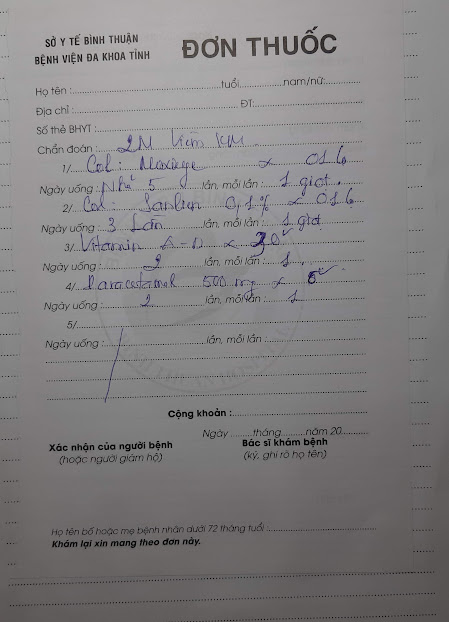 SỞ Y TẾ BÌNH THUẬN
BỆNH VIỆN ĐA KHOA TỈNH
ĐƠN THUỐC
Họ tên :..........tuổi..........nam/nữ:..........
Địa chỉ :..........ĐT:..........
Số thẻ BHYT :..........
Chẩn đoán : 2M Viêm KM
1/ Col : x 01 lọ
Ngày uống : Nhỏ 5 lần, mỗi lần : 1 giọt.
2/ Col : Sanlein 0,1% x 01 lọ
Ngày uống : 3 Lần lần, mỗi lần : 1 giọt
3/ Vitamin A-D x 20v
Ngày uống : 2 lần, mỗi lần : 1.
4/ Paracetamol 500 mg x
Ngày uống : 2 lần, mỗi lần : 1
5/
Ngày uống :..........lần, mỗi lần :..........
Cộng khoản :..........
Ngày ........tháng.........năm 20..........
Xác nhận của người bệnh
(hoặc người giám hộ)
Bác sĩ khám bệnh
(ký, ghi rõ họ tên)
Họ tên bố hoặc mẹ bệnh nhân dưới 72 tháng tuổi :..........
Khám lại xin mang theo đơn này.